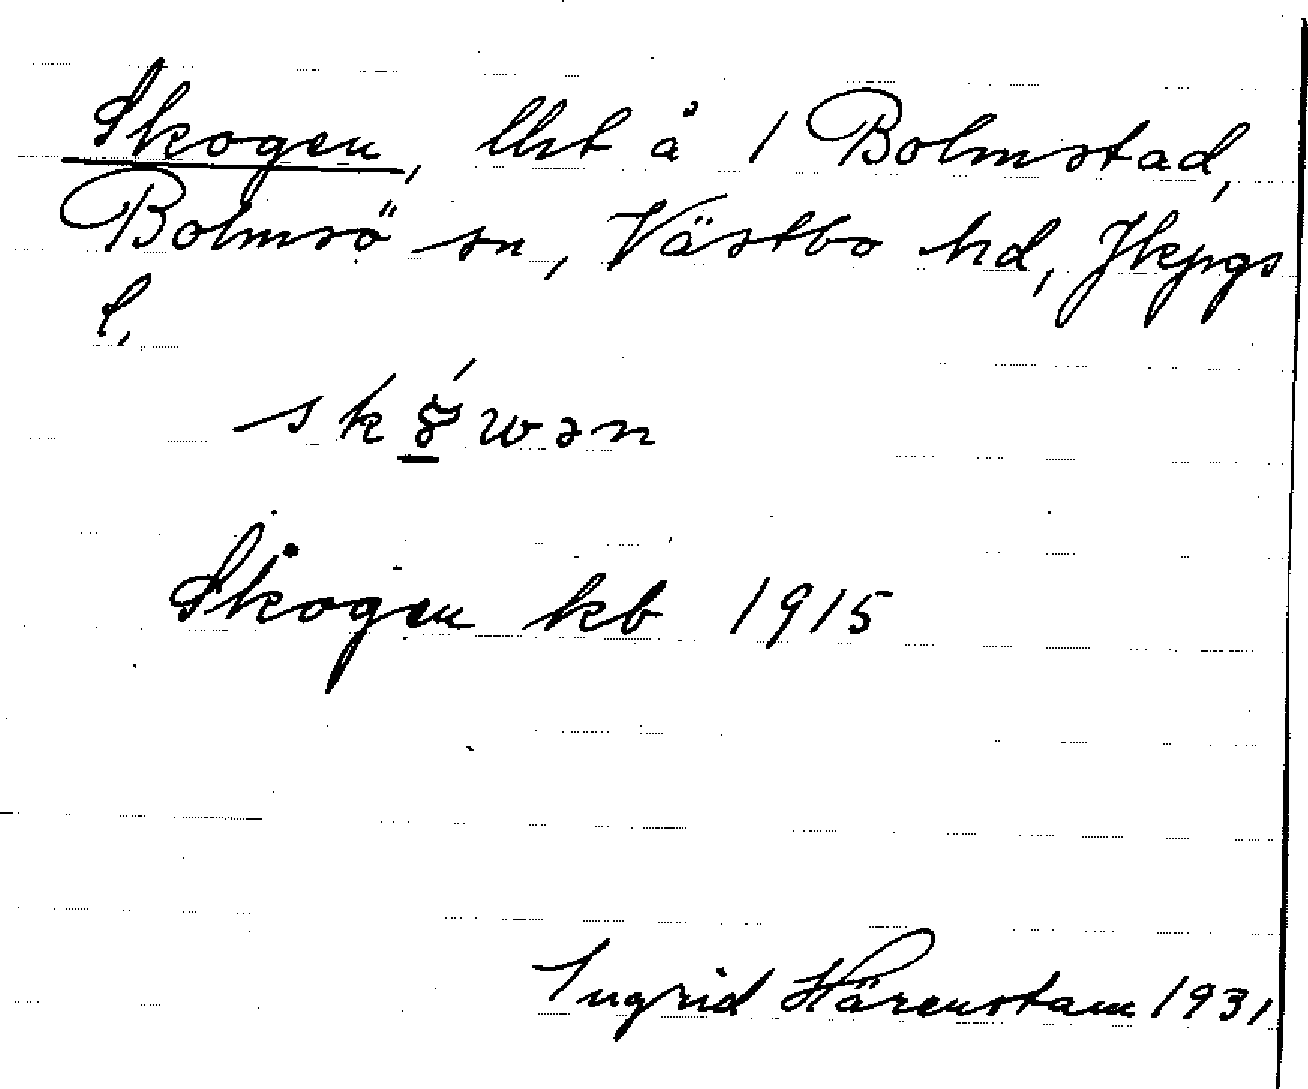 Skogen, lht å 1 Bolmstad,
Bolmsö sn, Västbo hd, Jkpgs
l.
Skogen kb 1915
Ingrid Härenstam 1931